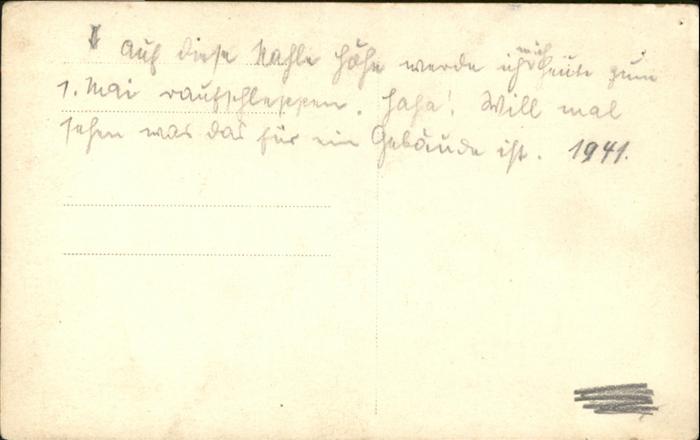 Auf diese kahle Höhe werde ich mich heute zum
1. Mai raufschleppen. Haha! Will mal
sehen was das für ein Gebäude ist. 1941.